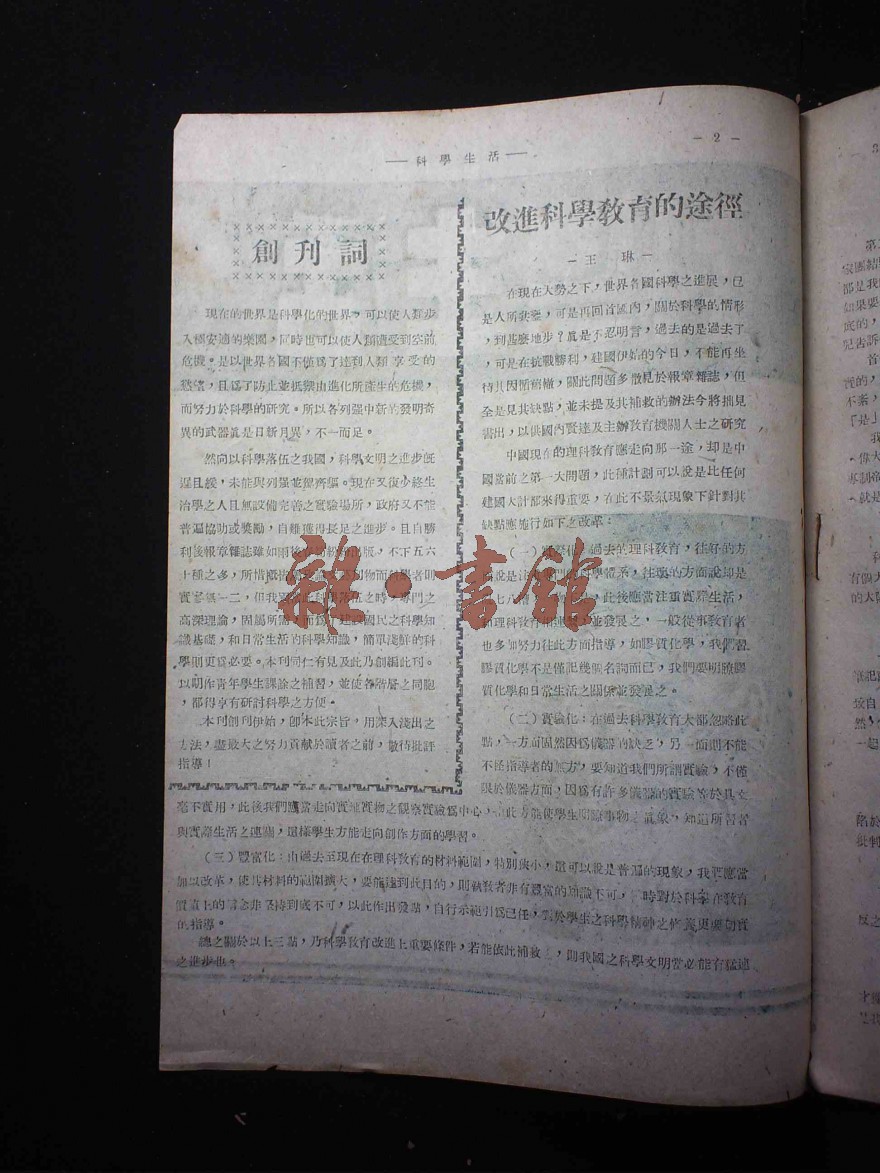 — 2 —
——科學生活——
創刊詞
現在的世界是科學化的世界，可以使人類步
入極安適的樂園，同時也可以使人類遭受到空前
危機。是以世界各國不僅爲了達到人類享受的
慾望，且爲了防止並抵禦由進化所產生的危機，
而努力於科學的研究。所以各列强中新的發明奇
異的武器眞是日新月異，不一而足。
然向以科學落伍之我國，科學文明之進步旣
遲且緩，未能與列强並駕齊驅。現在又復少終生
治學之人且無設備完善之實驗場所，政府又不能
普遍協助或獎勵，自難獲得長足之進步。且自勝
利後報章雜誌雖如雨後 出版，不下五六
十種之多，所惜 刊物而科學者則
實 一二，但我 科學落伍之時，專門之
高深理論，固屬所需，而爲了建設國民之科學知
識基礎，和日常生活的科學知識，簡單淺鮮的科
學則更爲必要。本刊同仁有見及此乃創編此刊。
以期作青年學生課餘之補習，並使各階層之同胞
，都得享有研討科學之方便。
本刊創刊伊始，卽本此宗旨，用深入淺出之
方法，盡最大之努力貢獻於讀者之前，敬待批評
指導！
改進科學教育的途徑
— 王 琳 —
在現在大勢之下，世界各國科學之進展，已
是人所 ，可是再回首國內，關於科學的情形
，到甚麼地步？眞是不忍明言，過去的是過去了
，可是在抗戰勝利，建國伊始的今日，不能再坐
待其因循 ，關此問題多散見於報章雜誌，但
全是見其缺點，並未提及其補救的辦法今將拙見
書出，以供國內賢達及主辦敎育機關人士之研究
中國現在的理科敎育應走向那一途，却是中
國當前之第一大問題，此種計劃可以說是比任何
建國大計都來得重要，在此不景氣現象下針對其
缺點應施行如下之改革：
（一）實際化：過去的理科敎育，往好的方
說是注 科學體系，往壞的方面說却是
七八 ，此後應當注重實際生活，
理科敎育和 ，並發展之，一般從事敎育者
也多加努力往此方面指導，如膠質化學，我們習
膠質化學不是僅記幾個名詞而已，我們要明瞭膠
質化學和日常生活之關係並發展之。
（二）實驗化：在過去科學敎育大都忽略此
點，一方面固然因爲儀器的缺乏，另一面則不能
不怪指導者的無方，要知道我們所謂實驗，不僅
限於儀器方面，因爲有許多儀器的實驗等於具文
毫不實用，此後我們應當走向實地實物之觀察實驗爲中心，如此方能使學生明瞭事物之眞象，知道所習者
與實際生活之連關，這樣學生方能走向創作方面的學習。
（三）豐富化：由過去至現在在理科敎育的材料範圍，特別狹小，這可以說是普遍的現象，我們應當
加以改革，使其材料的範圍擴大，要能達到此目的，則執敎者非有豐富的知識不可， 時對於科學在敎育
價值上的信念非堅持到底不可，以此作出發點，自行示範引爲己任，至於學生之科學精神之修養更要切實
的指導。
總之關於以上三點，乃科學敎育改進上重要條件，若能依此補救之，則我國之科學文明當必能有猛速
之進步也。
雜·書館